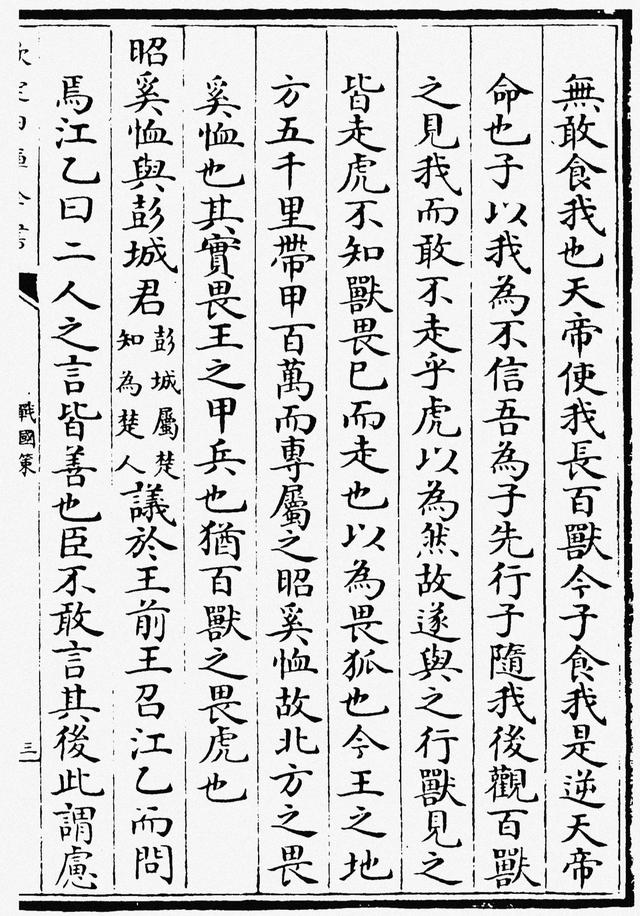 無敢食我也天帝使我長百獸今子食我是逆天帝
命也子以我為不信吾為子先行子隨我後觀百獸
之見我而敢不走乎虎以為然故遂與之行獸見之
皆走虎不知獸畏已而走也以為畏狐也今王之地
方五千里帶甲百萬而專屬之昭奚恤故北方之畏
奚恤也其實畏王之甲兵也猶百獸之畏虎也
昭奚恤與彭城君
彭城屬楚
知為楚人
議於王前王召江乙而問
焉江乙曰二人之言皆善也臣不敢言其後此謂慮
戰國策
三